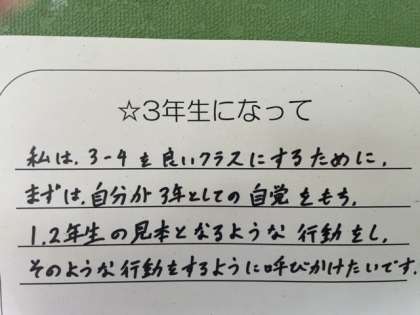 ☆3年生になって
私は、3-4を良いクラスにするために、
まずは、自分が3年としての自覚をもち、
1、2年生の見本となるような行動をし、
そのような行動をするように呼びかけたいです。